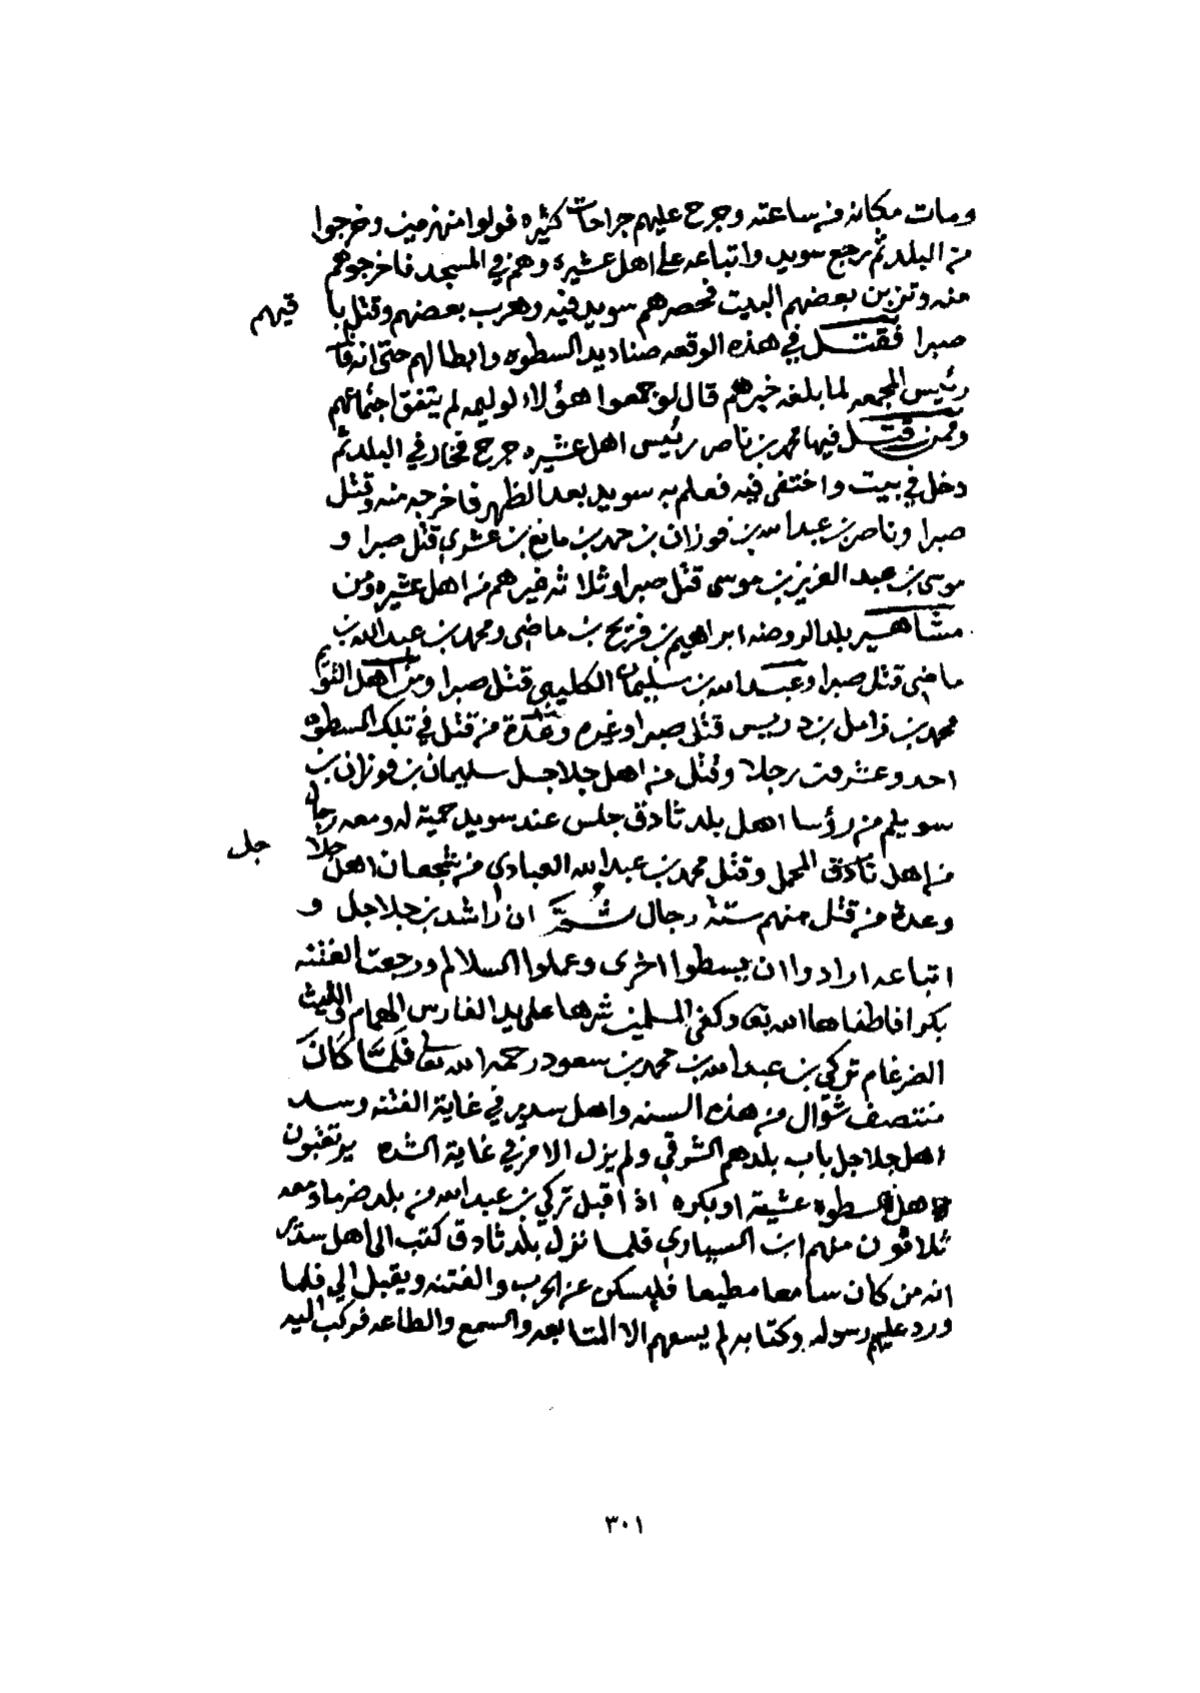 ومات مكانه من ساعته وجرح عليهم جراحات كثيره فولوا منهزمين وخرجوا
من البلد ثم رجع سويد واتباعه على اهل عشيره وهم في المسجد فاخرجوهم
منه وتزبن بعضهم البيت فحصرهم سويد فيه وهرب بعضهم وقتل با قيهم
صبرا فقتل في هذه الوقعه صناديد السطوه وابطالهم حتى انه قال
رئيس المجمعه لما بلغه خبرهم قال لو جمعوا هؤلاء لوليمه لم يتفق اجتماعهم
وممن قتل فيها محمد بن ناصر رئيس اهل عشيره جرح فحار في البلد ثم
دخل في بيت واختفى فيه فعلم به سويد بعد الظهر فاخرجه منه وقتل
صبرا وناصر بن عبدالله بن فوزان بن حمد بن مانع بن عشري قتل صبرا و
موسى بن عبد العزيز بن موسى قتل صبرا وثلاثه غيرهم من اهل عشيره ومن
مشاهير بلد الروضه ابراهيم بن فريح بن ماضي ومحمد بن عبدالله بن
ماضي قتل صبرا وعبدالله بن سليمان الكليبي قتل صبرا ومن اهل التويم
محمد بن زامل بن دريس قتل صبرا وغيره وعدة من قتل في تلك السطوه
احد وعشرين رجلا وقتل من اهل جلاجل سليمان بن فوزان بن
سويلم من رؤسا اهل بلد ثادق جلس عند سويد حمية له ومعه رجال
من اهل ثادق المحمل وقتل محمد بن عبدالله العبادي من شجعان اهل جلا جل
وعدة من قتل منهم ستة رجال ثم ان راشد بن جلاجل و
اتباعه ارادوا ان يسطوا اخرى وعملوا السلالم ورجعت الفتنه
بكرا فاطفاها الله تعا وكفى المسلمين شرها على يد الفارس الهمام والليث
الضرغام تركي بن عبدالله بن محمد بن سعود رحمه الله تعالى فلما كان
منتصف شوال من هذه السنه واهل سدير في غاية الفتنه وسد
اهل جلاجل باب بلدهم الشرقي ولم يزل الامر في غاية الشده يرتقبون
اهل السطوه عشية او بكره اذ اقبل تركي بن عبدالله من بلد ضرما ومعه
ثلاثون منهم ابن السياري فلما نزل بلد ثادق كتب الى اهل سدير
انه من كان سامعا مطيعا فليسكن عن الحرب والفتنه ويقبل الي فلما
ورد عليهم رسوله وكتابه لم يسعهم الا المتابعه والسمع والطاعه فركب اليه
٣٠١